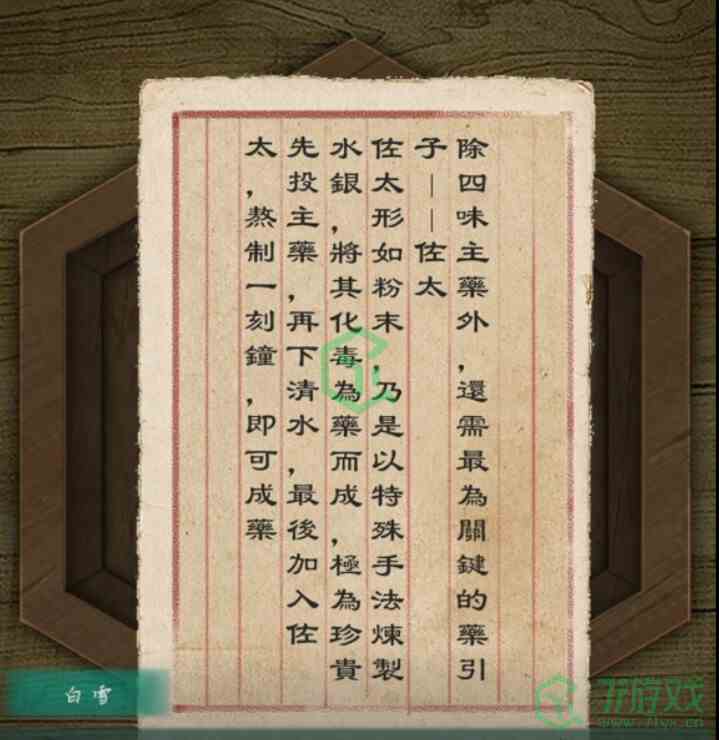 除四味主藥外，還需最為關鍵的藥引
子——佐太
佐太形如粉末，乃是以特殊手法煉製
水銀，將其化毒為藥而成，極為珍貴
先投主藥，再下清水，最後加入佐
太，熬制一刻鐘，即可成藥
白雪
九游戏
www.71yx.cn